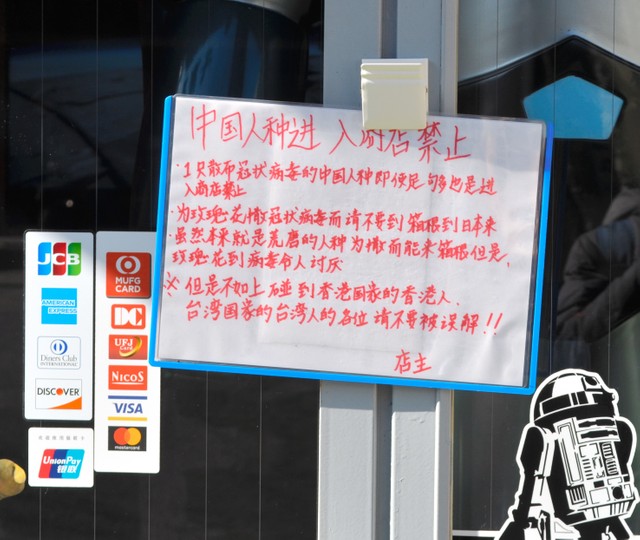 中国人种进 入商店禁止
・1只散布冠状病毒的中国人种即使足够也是进
入商店禁止
・为玫瑰花憎冠状病毒而请不要到箱根到日本来
・虽然本来就是荒唐的人种为憎而能来箱根但是、
玫瑰花到病毒令人讨厌
※但是不如上碰到香港国家的香港人、
台湾国家的台湾人的各位请不要被误解!!
店主
JCB
AMERICAN
EXPRESS
Diners Club
INTERNATIONAL
DISCOVER
UnionPay
银联
MUFG
CARD
DC
UFJ
Card
NICOS
VISA
mastercard